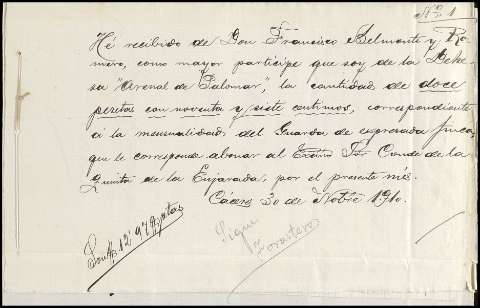 Nº 1
Hé recibido de Don Francisco Belmonte y Ro-
mero, como mayor partícipe que soy de la Dehe-
sa "Arenal de Palomar", la cantidad de doce
pesetas con noventa y siete céntimos, correspondiente
á la mensualidad del Guarda de expresada finca
que le corresponde abonar al Excmo Sor Conde de la
Quinta de la Enjarada, por el presente mes.
Cáceres 30 de Nobre 1910.
Son 12'97 Ptas
Sigue